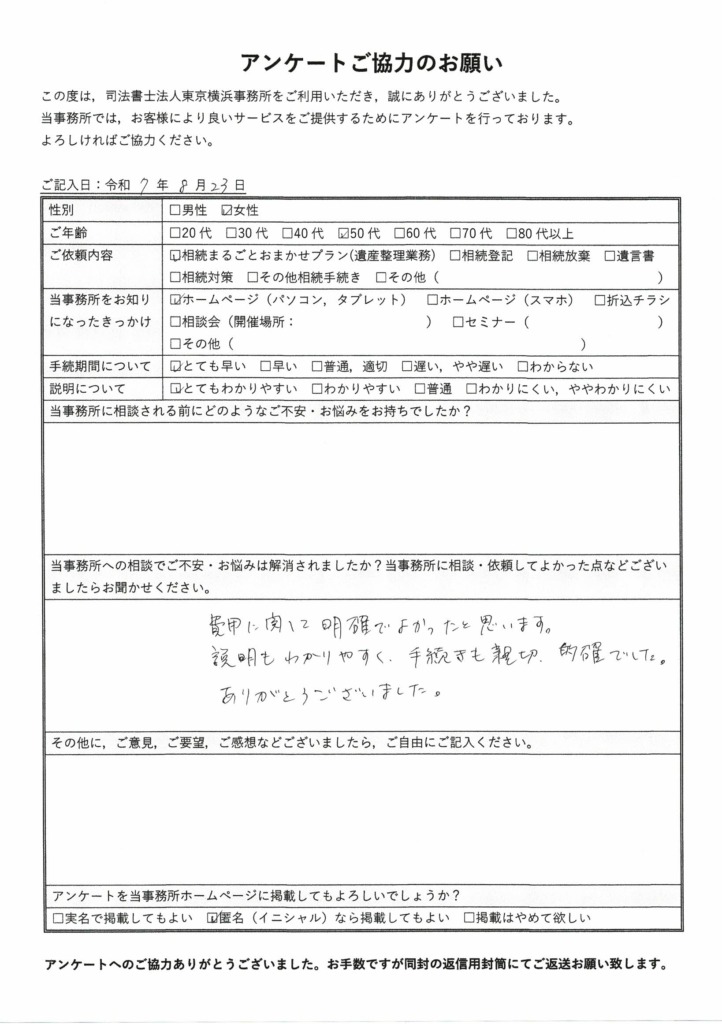 アンケートご協力のお願い
この度は，司法書士法人東京横浜事務所をご利用いただき，誠にありがとうございました。
当事務所では，お客様により良いサービスをご提供するためにアンケートを行っております。
よろしければご協力ください。
ご記入日：令和 7 年 8 月 23 日
性別 □男性 ☑女性
ご年齢 □20 代 □30 代 □40 代 ☑50 代 □60 代 □70 代 □80 代以上
ご依頼内容 ☑相続まるごとおまかせプラン(遺産整理業務) □相続登記 □相続放棄 □遺言書
□相続対策 □その他相続手続き □その他（ ）
当事務所をお知り ☑ホームページ（パソコン，タブレット） □ホームページ（スマホ） □折込チラシ
になったきっかけ □相談会（開催場所： ） □セミナー（ ）
□その他（ ）
手続期間について ☑とても早い □早い □普通，適切 □遅い，やや遅い □わからない
説明について ☑とてもわかりやすい □わかりやすい □普通 □わかりにくい，ややわかりにくい
当事務所に相談される前にどのようなご不安・お悩みをお持ちでしたか？
当事務所への相談でご不安・お悩みは解消されましたか？当事務所に相談・依頼してよかった点などござい
ましたらお聞かせください。
費用に関して明確でよかったと思います。
説明もわかりやすく、手続きも親切、的確でした。
ありがとうございました。
その他に，ご意見，ご要望，ご感想などございましたら，ご自由にご記入ください。
アンケートを当事務所ホームページに掲載してもよろしいでしょうか？
□実名で掲載してもよい ☑匿名（イニシャル）なら掲載してもよい □掲載はやめて欲しい
アンケートへのご協力ありがとうございました。お手数ですが同封の返信用封筒にてご返送お願い致します。